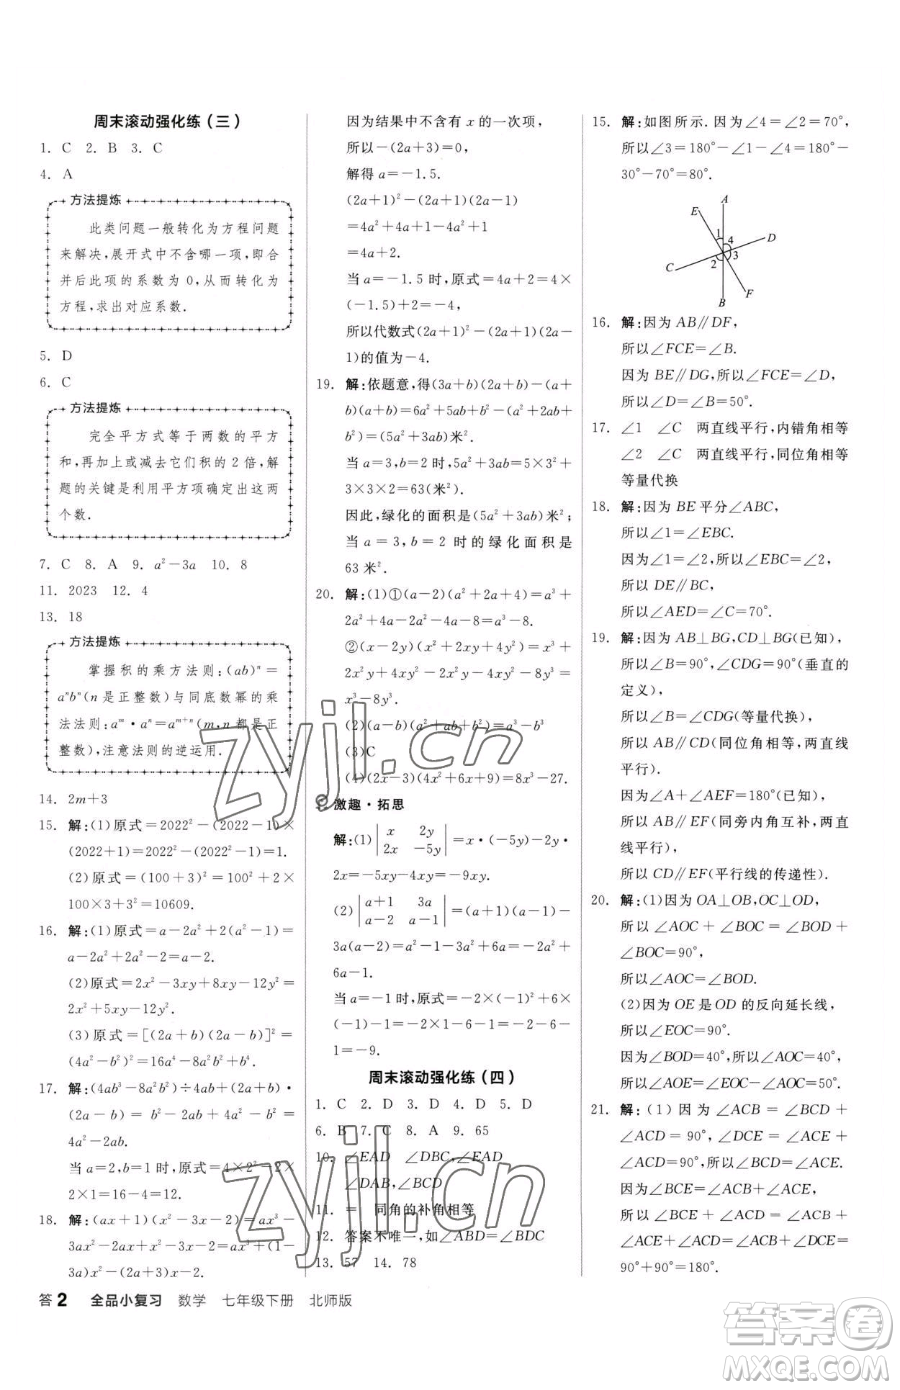 周末滚动强化练(三)
1. C 2. B 3. C
4. A
方法提炼
此类问题一般转化为方程问题
来解决,展开式中不含哪一项,即合
并后此项的系数为0,从而转化为
方程,求出对应系数.
5. D
6. C
方法提炼
完全平方式等于两数的平方
和,再加上或减去它们积的2倍,解
题的关键是利用平方项确定出这两
个数.
7. C 8. A 9. a²-3a 10. 8
11. 2023 12. 4
13. 18
方法提炼
掌握积的乘方法则:(ab)ⁿ=
aⁿbⁿ(n是正整数)与同底数幂的乘
法法则:aᵐ·aⁿ=aᵐ⁺ⁿ(m,n都是正
整数),注意法则的逆运用.
14. 2m+3
15. 解:(1)原式=2022²-(2022-1)×
(2022+1)=2022²-2022²+1=1.
(2)原式=(100+3)²=100²+2×
100×3+3²=10609.
16. 解:(1)原式=a-2a²+2(a²-1)=
a-2a²+2a²-2=a-2.
(2)原式=2x²-3xy+8xy-12y²=
2x²+5xy-12y².
(3)原式=[(2a+b)(2a-b)]²=
(4a²-b²)²=16a⁴-8a²b²+b⁴.
17. 解:(4ab³-8a²b²)÷4ab+(2a+b)·
(2a-b)=b²-2ab+4a²-b²=
4a²-2ab.
当a=2,b=1时,原式=4×2²-2×
2×1=16-4=12.
18. 解:(ax+1)(x²-3x-2)=ax³-
3ax²-2ax+x²-3x-2=ax³+(1-
3a)x²-(2a+3)x-2.
因为结果中不含有x的一次项,
所以-(2a+3)=0,
解得a=-1.5.
(2a+1)²-(2a+1)(2a-1)
=4a²+4a+1-4a²+1
=4a+2.
当a=-1.5时,原式=4a+2=4×
(-1.5)+2=-4.
所以代数式(2a+1)²-(2a+1)(2a-
1)的值为-4.
19. 解:依题意,得(3a+b)(2a+b)-(a+
b)(a+b)=6a²+5ab+b²-a²-2ab-
b²=(5a²+3ab)米².
当a=3,b=2时,5a²+3ab=5×3²+
3×3×2=63(米²).
因此,绿化的面积是(5a²+3ab)米²;
当a=3,b=2时的绿化面积是
63米².
20. 解:(1)①(a-2)(a²+2a+4)=a³+
2a²+4a-2a²-4a-8=a³-8.
②(x-2y)(x²+2xy+4y²)=x³+
2x²y+4xy²-2x²y-4xy²-8y³=
x³-8y³.
(2)(a-b)(a²+ab+b²)=a³-b³
(3)C
(4)(2x-3)(4x²+6x+9)=8x³-27.
激趣·拓思
解:(1)|x 2y|
|2x -5y|=x·(-5y)-2y·
2x=-5xy-4xy=-9xy.
(2)|a+1 3a|
|a-2 a-1|=(a+1)(a-1)-
3a(a-2)=a²-1-3a²+6a=-2a²+
6a-1.
当a=-1时,原式=-2×(-1)²+6×
(-1)-1=-2×1-6-1=-2-6-
1=-9.
周末滚动强化练(四)
1. C 2. D 3. D 4. D 5. D
6. B 7. C 8. A 9. 65
10. ∠EAD ∠DBC,∠EAD
∠DAB,∠EAB
11. = 同角的补角相等
12. 答案不唯一,如∠ABD=∠BDC
13. 57 14. 78
15. 解:如图所示.因为∠4=∠2=70°,
所以∠3=180°-∠1-∠4=180°-
30°-70°=80°.
A
E
1
4
D
3
2
C
F
B
16. 解:因为AB∥DF,
所以∠FCE=∠B.
因为BE∥DG,所以∠FCE=∠D,
所以∠D=∠B=50°.
17. ∠1 ∠C 两直线平行,内错角相等
∠2 ∠C 两直线平行,同位角相等
等量代换
18. 解:因为BE平分∠ABC,
所以∠1=∠EBC.
因为∠1=∠2,所以∠EBC=∠2,
所以DE∥BC,
所以∠AED=∠C=70°.
19. 解:因为AB⊥BG,CD⊥BG(已知),
所以∠B=90°,∠CDG=90°(垂直的
定义),
所以∠B=∠CDG(等量代换),
所以AB∥CD(同位角相等,两直线
平行).
因为∠A+∠AEF=180°(已知),
所以AB∥EF(同旁内角互补,两直
线平行),
所以CD∥EF(平行线的传递性).
20. 解:(1)因为OA⊥OB,OC⊥OD,
所以∠AOC+∠BOC=∠BOD+
∠BOC=90°,
所以∠AOC=∠BOD.
(2)因为OE是OD的反向延长线,
所以∠EOC=90°.
因为∠BOD=40°,所以∠AOC=40°,
所以∠AOE=∠EOC-∠AOC=50°.
21. 解:(1)因为∠ACB=∠BCD+
∠ACD=90°,∠DCE=∠ACE+
∠ACD=90°,所以∠BCD=∠ACE.
因为∠BCE=∠ACB+∠ACE,
所以∠BCE+∠ACD=∠ACB+
∠ACE+∠ACD=∠ACB+
∠DCE=180°.
答2 全品小复习 数学 七年级下册 北师版
zyjl.cn
zyjl.cn
答案圈
MXQE.COM